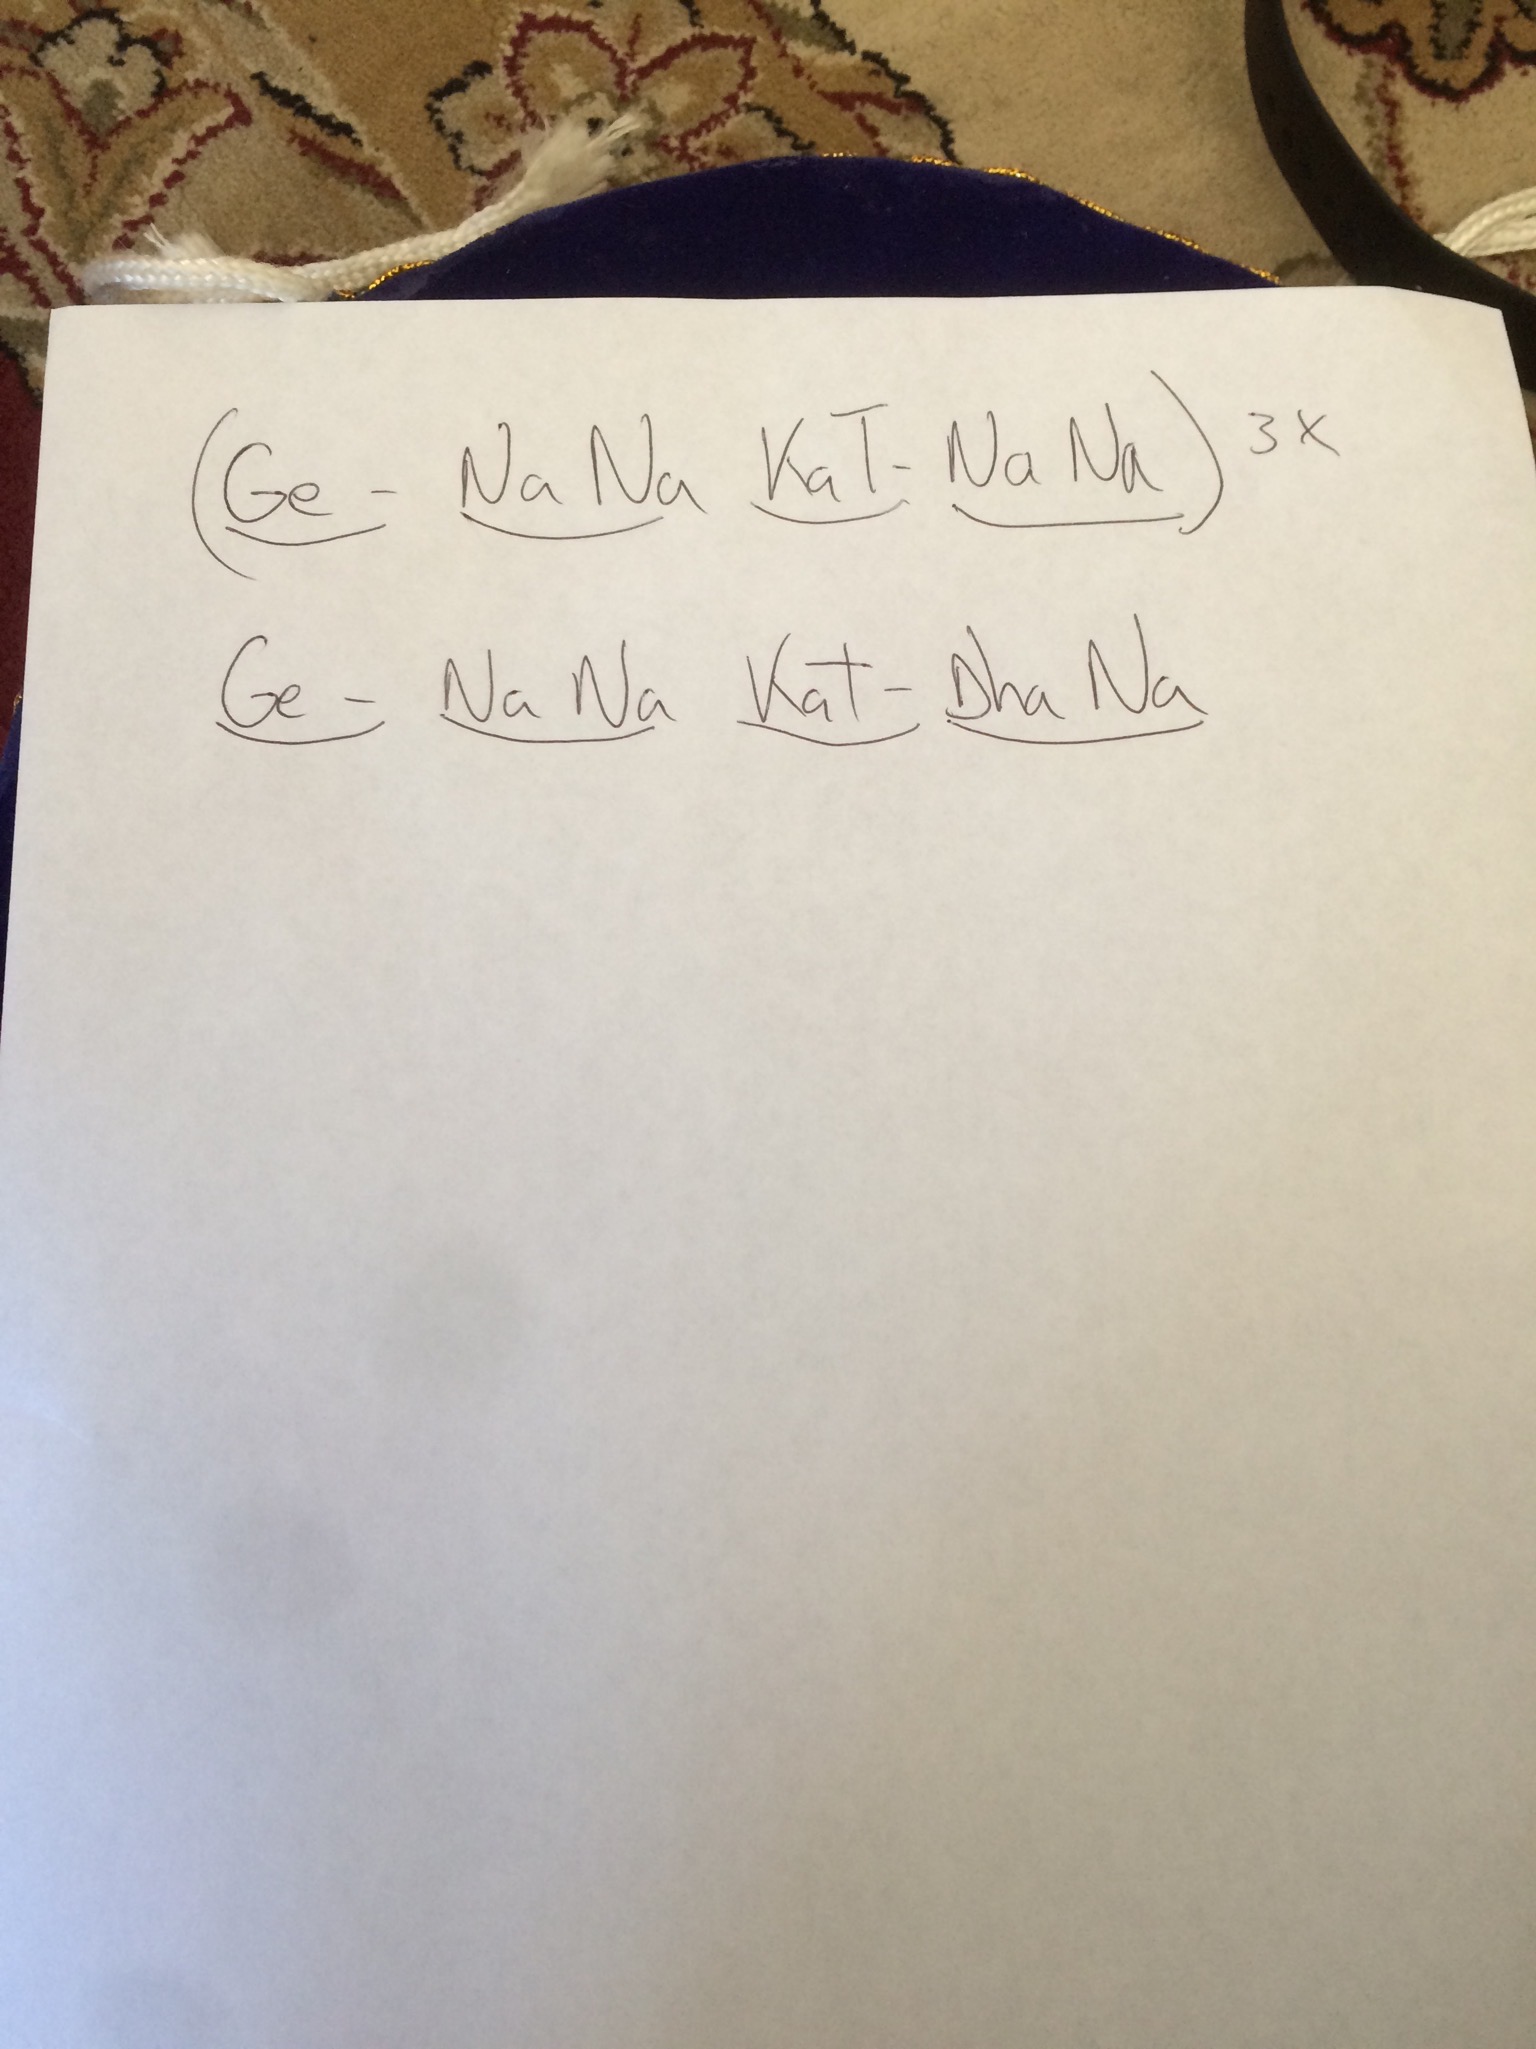 (Ge - Na Na KaT - Na Na) 3x
Ge - Na Na KaT - Dha Na